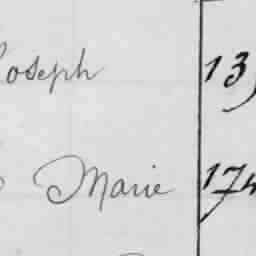 Joseph 13
Marie 174